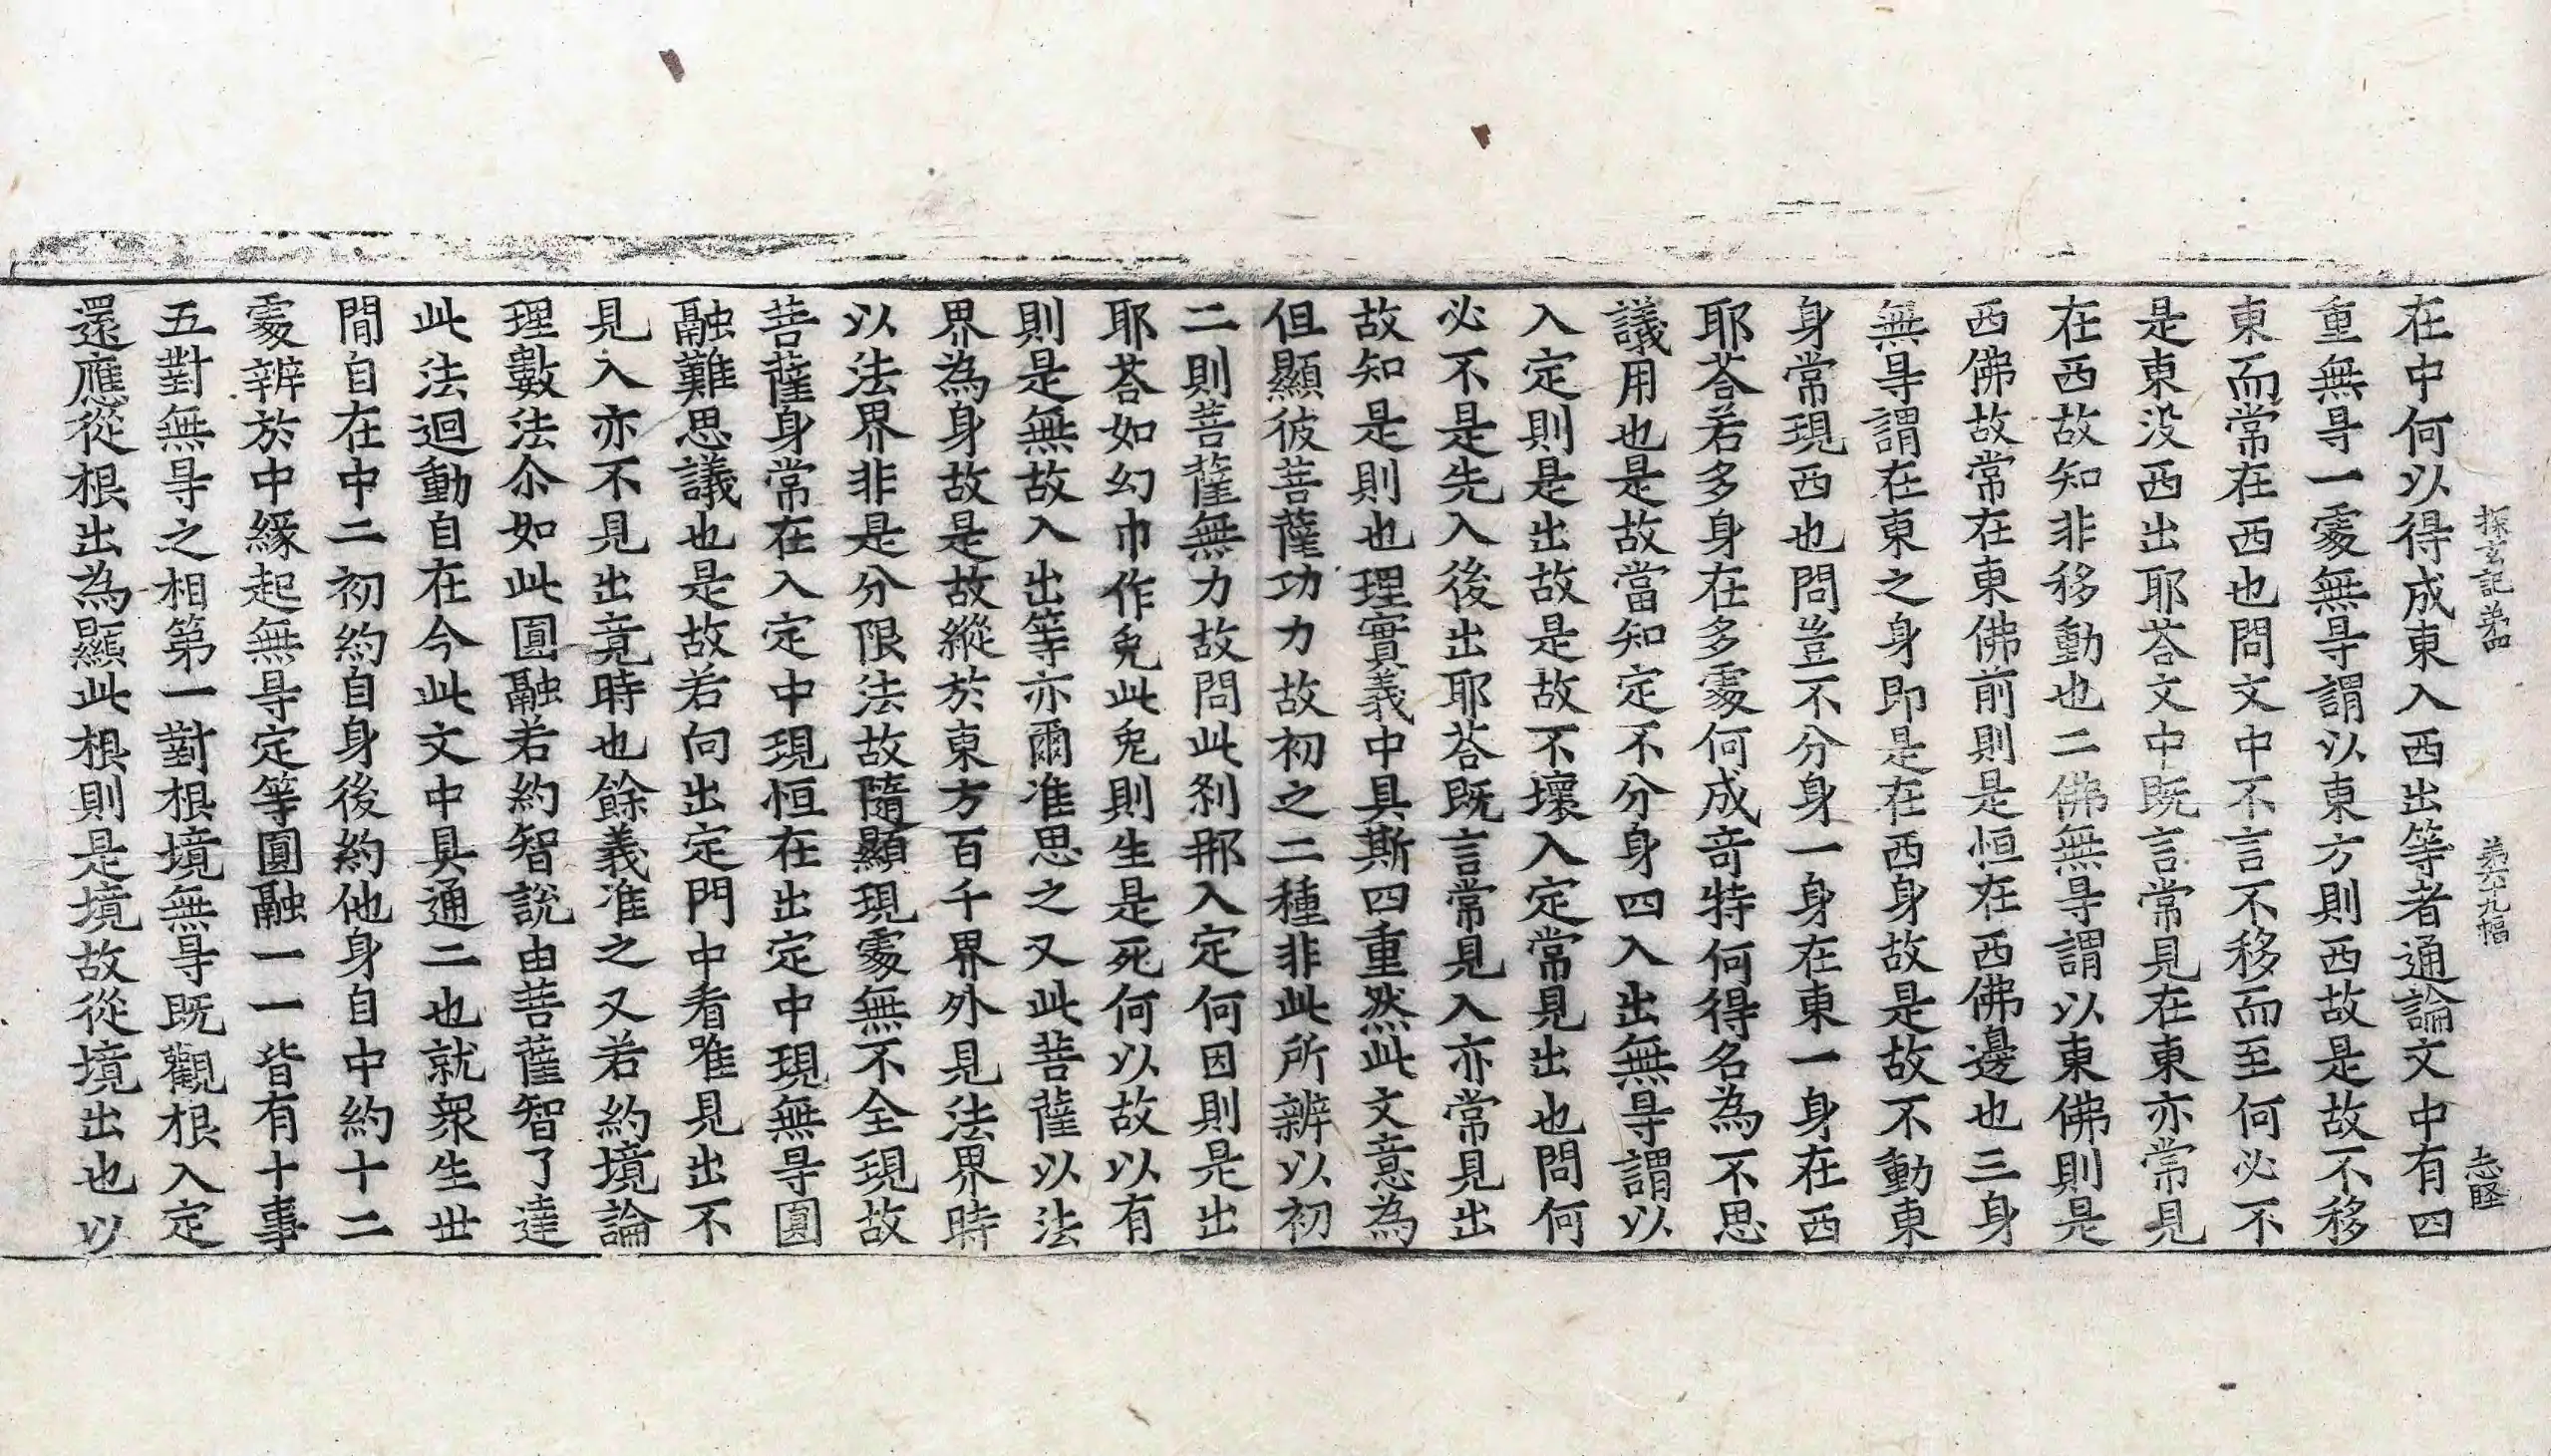 探玄記第四 第十九幅 志堅
在中何以得成東入西出等者通論文中有四
重無㝵一處無㝵謂以東方則西故是故不移
東而常在西也問文中不言不移而至何必不
是東没西出耶荅文中既言常見在東亦常見
在西故知非移動也二佛無㝵謂以東佛則是
西佛故常在東佛前則是恒在西佛邊也三身
無㝵謂在東之身即是在西身故是故不動東
身常現西也問豈不分身一身在東一身在西
耶荅若多身在多處何成竒特何得名為不思
議用也是故當知定不分身四入出無㝵謂以
入定則是出故是故不壞入定常見出也問何
必不是先入後出耶荅既言常見入亦常見出
故知是則也理實義中具斯四重然此文意為
但顯彼菩薩功力故初之二種非此所辨以初
二則菩薩無力故問此刹那入定何因則是出
耶荅如幻巾作兎此兎則生是死何以故以有
則是無故入出等亦爾准思之又此菩薩以法
界為身故是故縱於東方百千界外見法界時
以法界非是分限法故隨顯現處無不全現故
菩薩身常在入定中現恒在出定中現無㝵圓
融難思議也是故若向出定門中看唯見出不
見入亦不見出竟時也餘義准之又若約境論
理數法尒如此圓融若約智說由菩薩智了達
此法迴動自在今此文中具通二也就衆生世
間自在中二初約自身後約他身自中約十二
處辨於中緣起無㝵定等圓融一一皆有十事
五對無㝵之相第一對根境無㝵既觀根入定
還應從根出為顯此根則是境故從境出也以